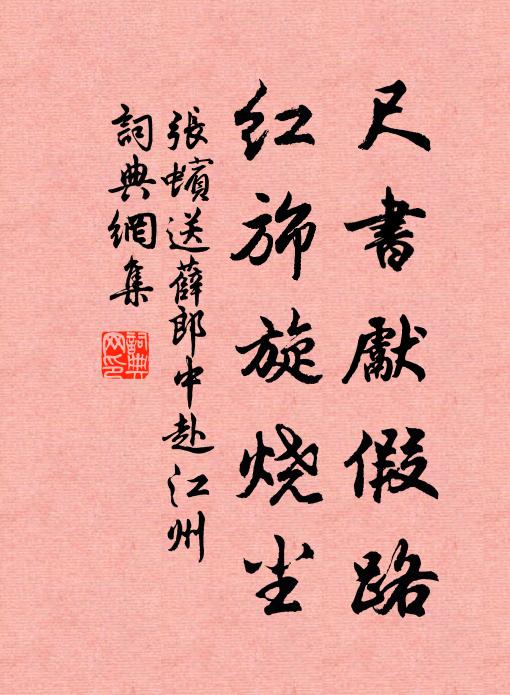 尺書獻假路
红旆旋烧尘
張蠙送薛郎中赴江州
詞典網集
詞典网印